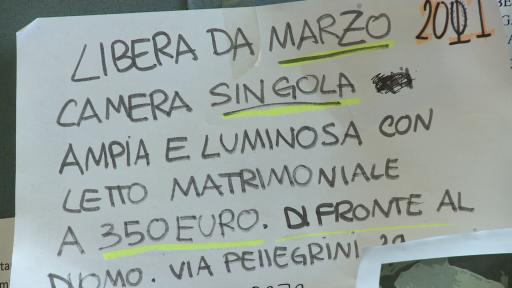 LIBERA DA MARZO 2011
CAMERA SINGOLA
AMPIA E LUMINOSA CON
LETTO MATRIMONIALE
A 350 EURO. DI FRONTE AL
DUOMO. VIA PELLEGRINI